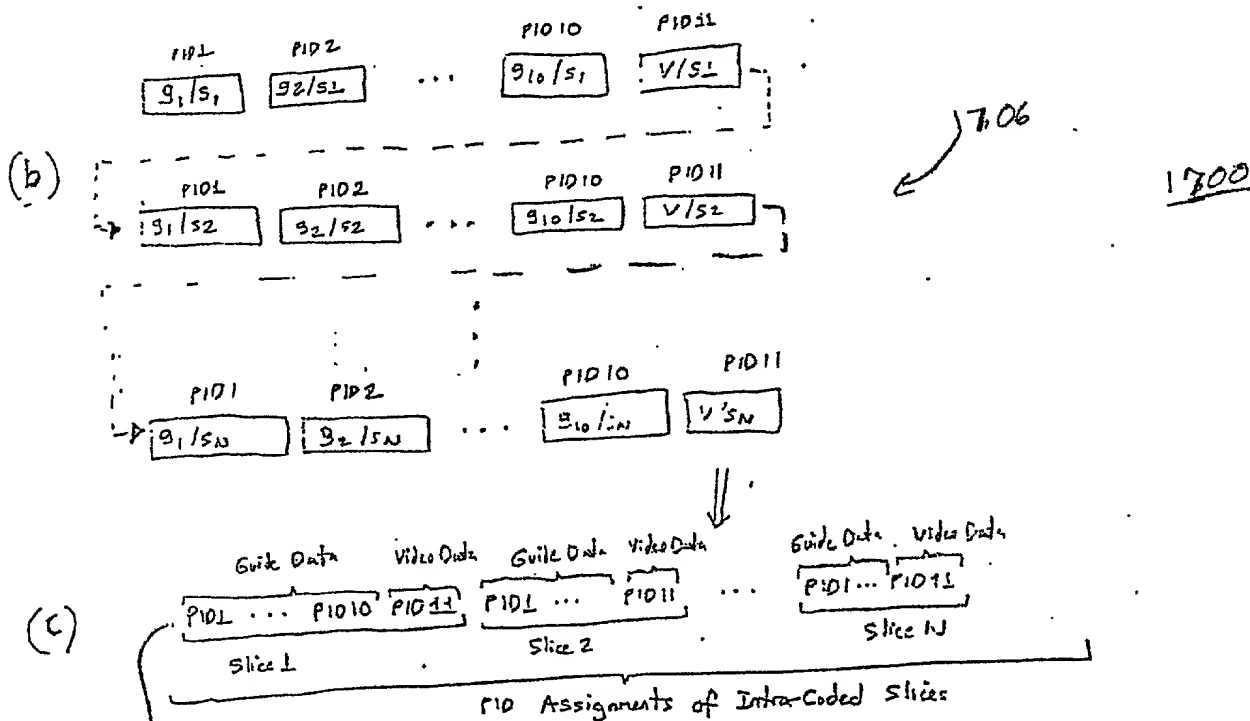 PID1 PID2 PID10 PID11
g1/s1 g2/s1 ... g10/s1 V/S1
1706
(b)
1700
PID1 PID2 PID10 PID11
g1/s2 g2/s2 ... g10/s2 V/S2
PID1 PID2 PID10 PID11
g1/sN g2/sN ... g10/sN V/sN
Guide Data Video Data Guide Data Video Data Guide Data Video Data
(c)
PID1 ... PID10 PID11 PID1 ... PID11 ... PID1... PID11
Slice 1 Slice 2 Slice N
PID Assignments of Intra-Coded Slices